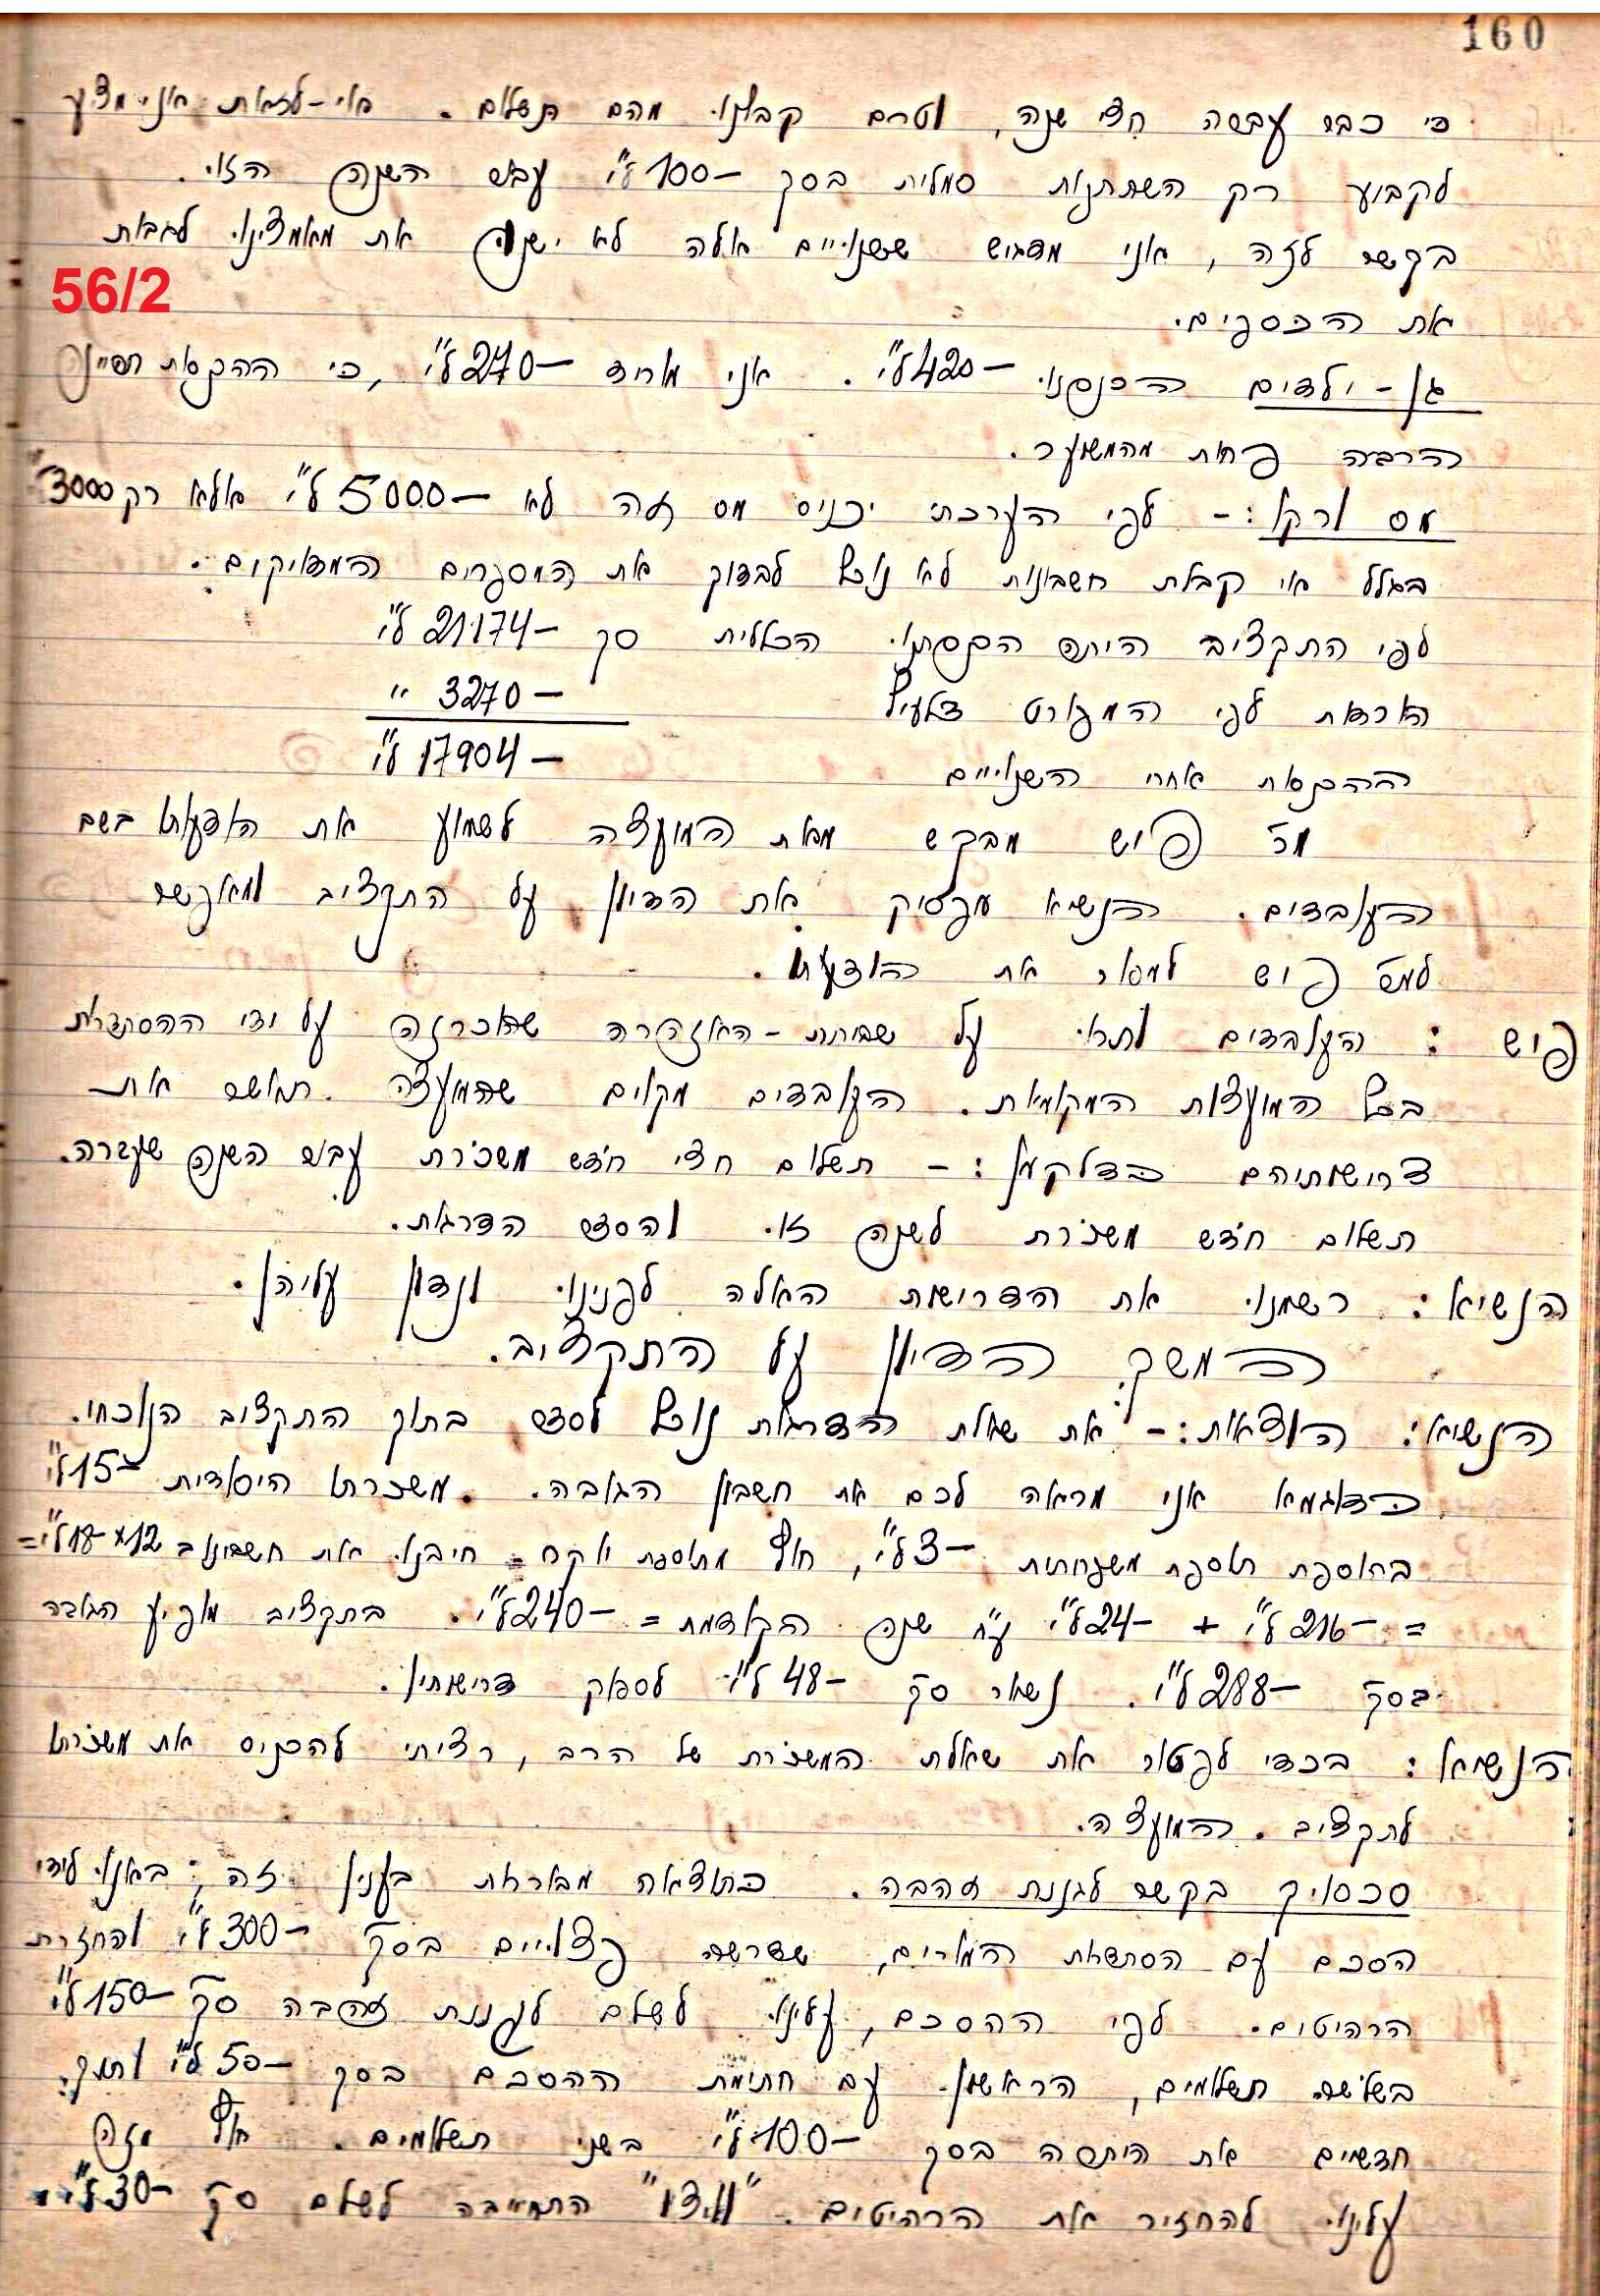 160
כי כבר עברה חצי שנה, וטרם קבלנו מהם תשלום. אי-לזאת אני מציע
לקבוע רק השתתפות סמלית בסך 100- ל"י עבור השנה הזו.
בקשר לזה, אני מדגיש ששנויים אלה לא ישנו את מאמצינו לגבות
את הכספים.
56/2
גן-ילדים הכנסנו 420- ל"י. אני מוריד 270- ל"י, כי ההכנסות תהיינה
הרבה פחות מהמשוער.
מס ורקו:- לפי הערכתי יכניס מס זה לא 5000- ל"י אלא רק 3000"
בגלל אי קבלת חשבונות לא נוכל לבדוק את המספרים המדויקים.
לפי התקציב היתה הכנסתנו הכללית סך 21174- ל"י
הורדות לפי המפורט דלעיל 3270- "
ההכנסות אחרי השנויים 17904- ל"י
מר פיש מבקש מאת המועצה לשמוע את הודעתו בשם
העובדים. הנשיא מפסיק את הדיון על התקציב ומאפשר
למר פיש למסור את הודעתו.
פיש: העובדים ותרו על שביתת-האזהרה שהוכרזה על ידי ההסתדרות
בכל המועצות המקומיות. העובדים מקוים שהמועצה תאשר את
דרישותיהם כדלקמן:- תשלום חצי חדש משכורת עבור השנה שעברה.
תשלום חדש משכורת לשנה זו והסדר הדרגות.
הנשיא: רשמנו את הדרישות האלה לפנינו ונדון עליהן.
המשך הדיון על התקציב.
הנשיא: הוצאות:- את שאלת הדרגות נוכל לסדר בתוך התקציב הנוכחי.
כדוגמא אני מראה לכם את חשבון הגובה. משכורתו היסודית 15- ל"י
בתוספת תוספת משפחתית 3- ל"י, חוץ מתוספת יוקר. חיבנו את חשבוננו ב 12x18- ל"י=
= 216- ל"י + 24- ל"י ע"ח שנה הקודמת = 240- ל"י. בתקציב מופיע הגובה
בסך 288- ל"י. נשאר סך 48- ל"י לספוק דרישותיו.
הנשיא: בכדי לפטור את שאלת המשכורת של הרב, רציתי להכניס את משכורתו
לתקציב המועצה.
סכסוך בקשר לגננת זהבה. כתוצאה מבוררות בענין זה, באנו לידי
הסכם עם הסתדרות המורים, שדרשה פצויים בסך 300- ל"י והחזרת
הרהיטים. לפי ההסכם, עלינו לשלם לגננת זהבה סך 150- ל"י
בשלשה תשלומים, הראשון עם חתימת ההסכם בסך 50- ל"י ותוך
חדשיים את היתרה בסך 100- ל"י בשני תשלומים. חוץ מזה
עלינו להחזיר את הרהיטים. "ויצו" התחייבה לשלם סך 30- ל"י